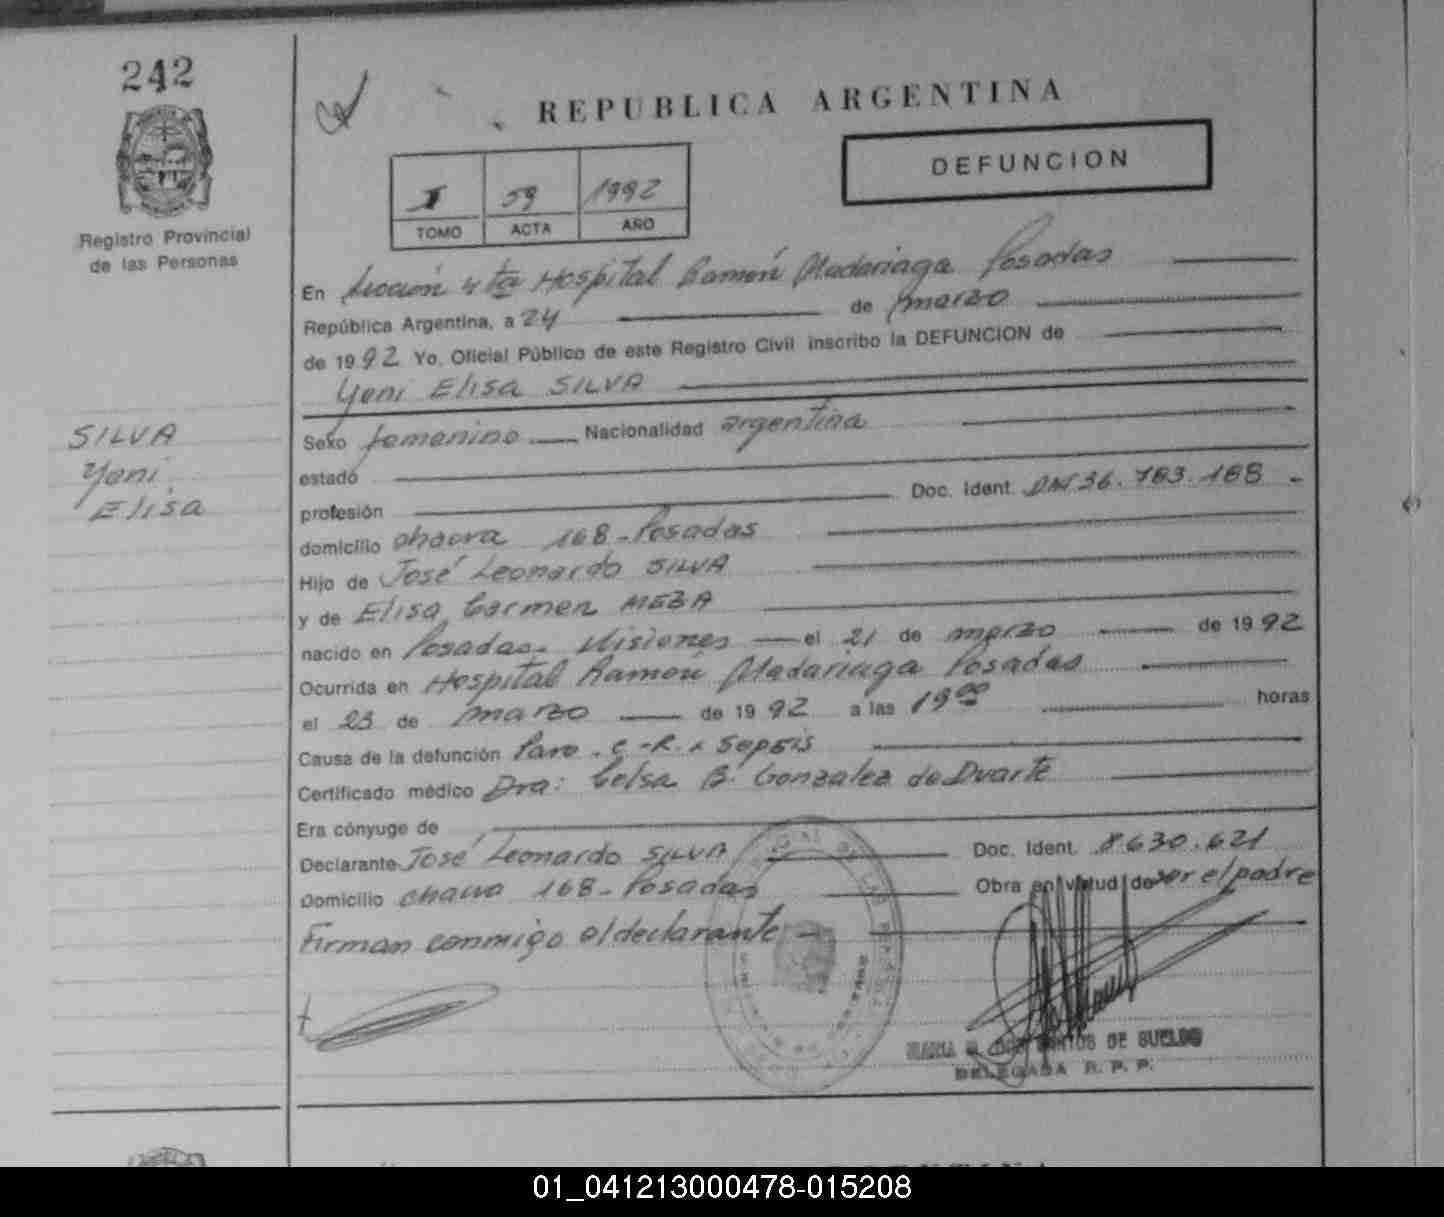 242
Registro Provincial
de las Personas
SILVA
Yeni
Elisa
REPUBLICA ARGENTINA
I 59 1992
TOMO ACTA AÑO
DEFUNCION
En Sección 4ta Hospital Ramón Madariaga Posadas
República Argentina, a 24 de marzo
de 1992 Yo, Oficial Público de este Registro Civil inscribo la DEFUNCION de
Yeni Elisa SILVA
Sexo femenino Nacionalidad argentina
estado
profesión Doc. Ident. DNI 36.783.188
domicilio chacra 168-Posadas
Hijo de José Leonardo SILVA
y de Elisa Carmen MEZA
nacido en Posadas. Misiones el 21 de marzo de 1992
Ocurrida en Hospital Ramón Madariaga Posadas
el 23 de marzo de 1992 a las 19 00 horas
Causa de la defunción Paro. C-R. x Sepsis
Certificado médico Dra: Celsa B. Gonzalez de Duarte
Era cónyuge de
Declarante José Leonardo SILVA Doc. Ident. 8630.621
Domicilio chacra 168-Posadas Obra en virtud de ser el padre
Firman conmigo el declarante
DE SUELDO
DELEGADA R. P. P.
01_041213000478-015208